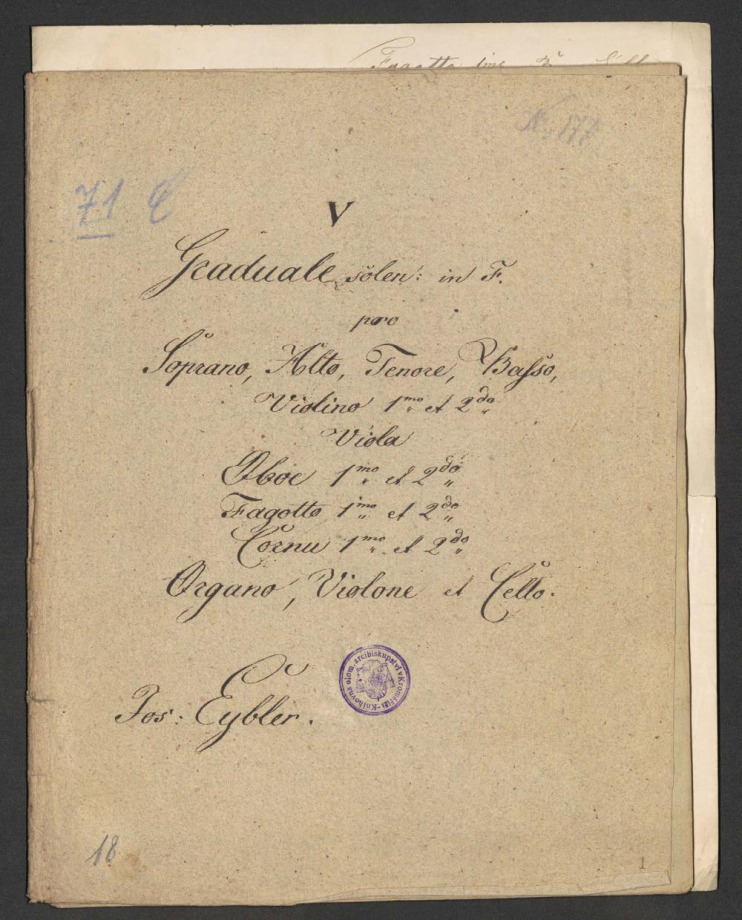 Fagotto
No 177
71 C
V
Graduale solen: in F.
pro
Soprano, Alto, Tenore, Basso,
Violino 1mo et 2do
Viola
Oboe 1mo et 2do
Fagotto 1mo et 2do
Cornu 1mo et 2do
Organo, Violone et Cello.
Knihovna olom. arcibiskupství v Kroměříži
Jos: Eybler.
18
1